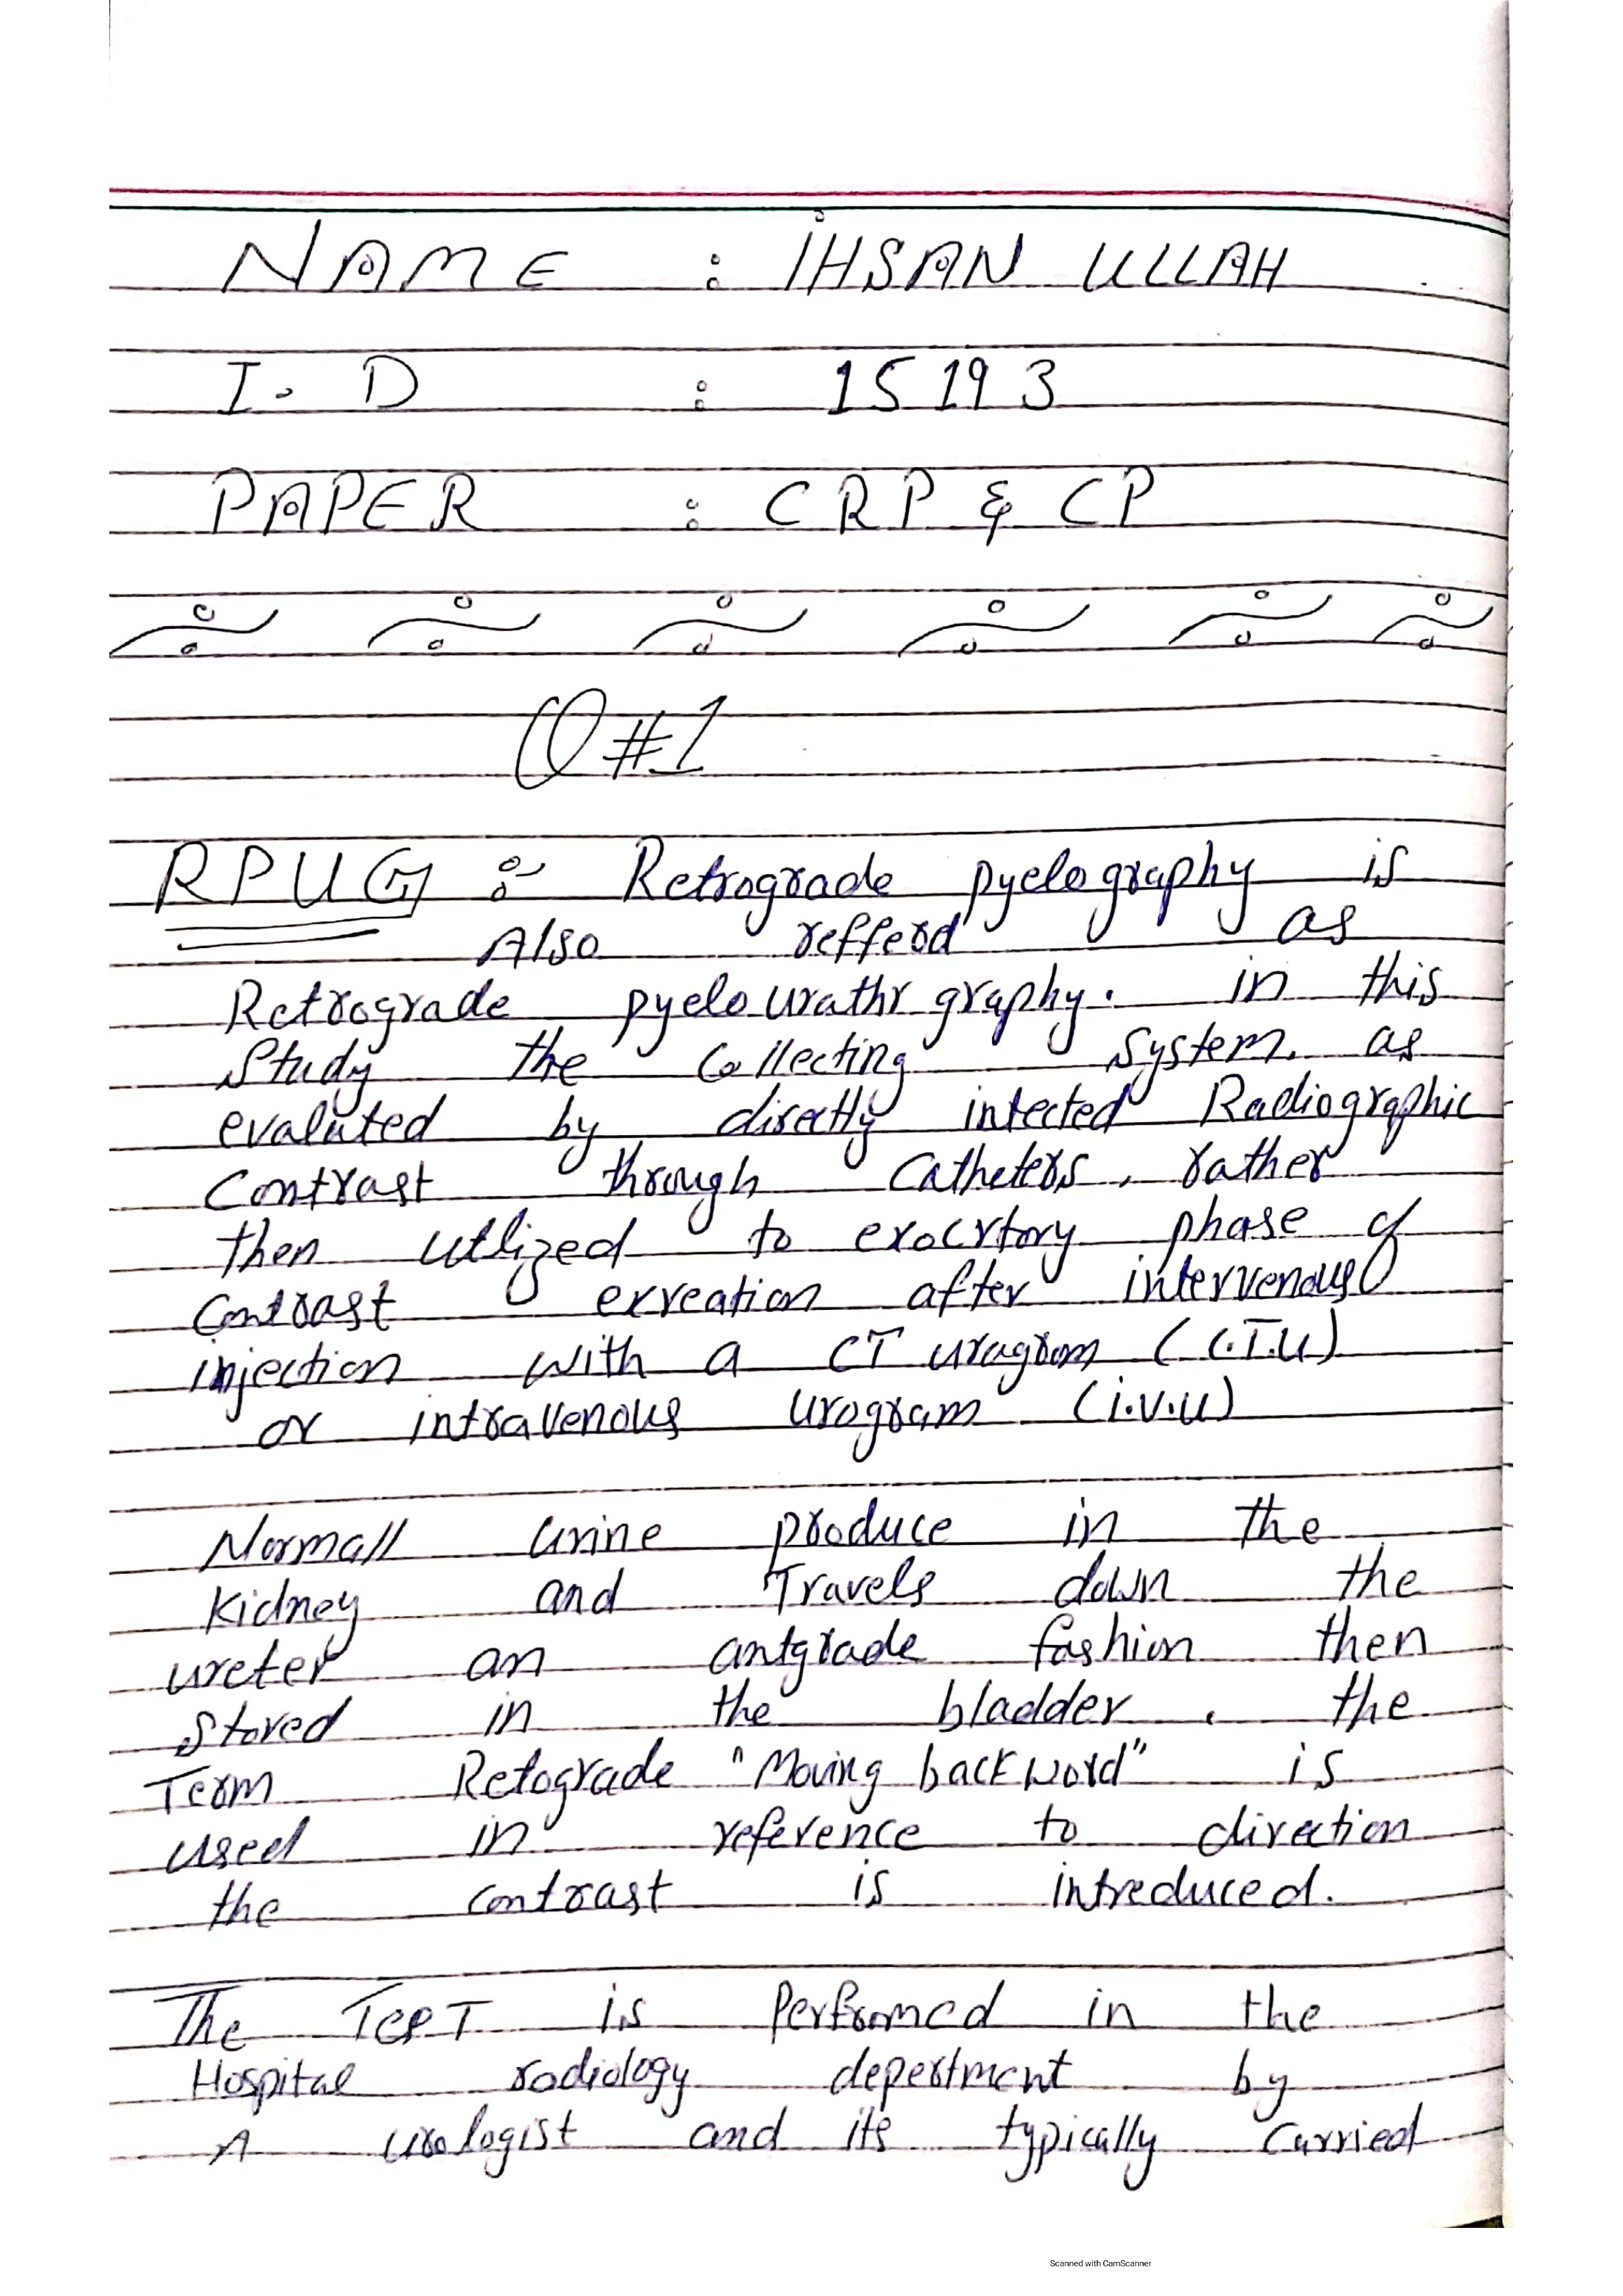 NAME : IHSAN ULLAH
I. D : 15193
PAPER : CRP & CP
Q#1
RPUG :- Retrograde pyelography is
Also refferd as
Retrograde pyelo urathr graphy. in this
Study the Collecting System. as
evaluted by directly intected Radiographic
Contrast through Catheters, rather
then utlized to exocrtory phase of
Contrast exreation after intervenous
injection with a CT uragrom (C.T.U)
or intravenous urogram (i.v.u)
Normall urine produce in the
Kidney and Travels down the
ureter an antgrade fashion then
Stored in the bladder, the
Term Retograde "Moving backword" is
used in reference to direction
the contrast is intreduced.
The Test is Perfromed in the
Hospital radiology depertment by
A urologist and its typically Carried
Scanned with CamScanner